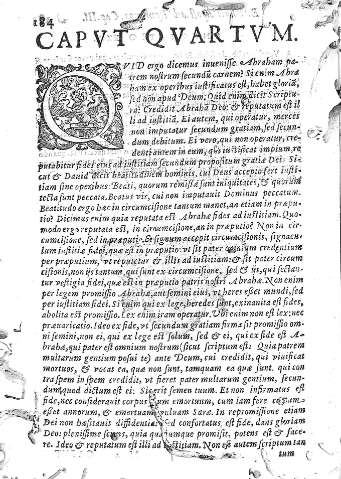 184
CAPVT QVARTVM.
QVID ergo dicemus inuenisse Abraham pa-
trem nostrum secundũ carnem? Si enim Abra
ham ex operibus iustificatus est, habet gloriã,
sed non apud Deum. Quid enim dicit Scriptu-
ra? Credidit Abrahã Deo: & reputatum est il
li ad iustitiã. Ei autem, qui operatur, merces
non imputatur secundum gratiam, sed secun-
dum debitum. Ei vero, qui non operatur, cre-
denti autem in eum, qui iustificat impium, re
putabitur fides eius ad iustitiam secundum propositum gratiæ Dei: Si
cut & Dauid dicit beatitudinem hominis, cui Deus accepto fert iusti-
tiam sine operibus: Beati, quorum remissæ sunt iniquitates, & quorum
tecta sunt peccata. Beatus vir, cui non imputauit Dominus peccatum.
Beatitudo ergo hæc in circumcisione tantum manet, an etiam in præpu-
tio? Dicimus enim quia reputata est Abrahæ fides ad iustitiam. Quo-
modo ergo reputata est, in circumcisione, an in præputio? Non in cir-
cumcisione, sed in præputio. & signum accepit circumcisionis, signacu-
lum iustitiæ fidei, quæ est in præputio: vt sit pater omnium credentium
per præputium, vt reputetur & illis ad iustitiam: & sit pater circum
cisionis, non iis tantum, qui sunt ex circumcisione, sed & iis, qui sectan-
tur vestigia fidei, quæ est in præputio patris nostri Abrahæ. Non enim
per legem promissio Abrahæ, aut semini eius, vt heres esset mundi, sed
per iustitiam fidei. Si enim qui ex lege, heredes sunt, exinanita est fides,
abolita est promissio. Lex enim iram operatur. Vbi enim non est lex: nec
præuaricatio. Ideo ex fide, vt secundum gratiam firma sit promissio om-
ni semini, non ei, qui ex lege est solum, sed & ei, qui ex fide est A-
brahæ, qui pater est omnium nostrum (sicut scriptum est: Quia patrem
multarum gentium posui te) ante Deum, cui credidit, qui viuificat
mortuos, & vocat ea, quæ non sunt, tamquam ea quæ sunt. qui con
tra spem in spem credidit, vt fieret pater multarum gentium, secun-
dum quod dictum est ei: Sic erit semen tuum. Et non infirmatus est
fide, nec considerauit corpus suum emortuum, cum iam fere centum
esset annorum, & emortuam vuluam Sara. In repromissione etiam
Dei non hæsitauit diffidentia, sed confortatus, est fide, dans gloriam
Deo: plenissime sciens, quia quæcumque promisit, potens est & face-
re. Ideo & reputatum est illi ad iustitiam. Non est autem scriptum tan
tum